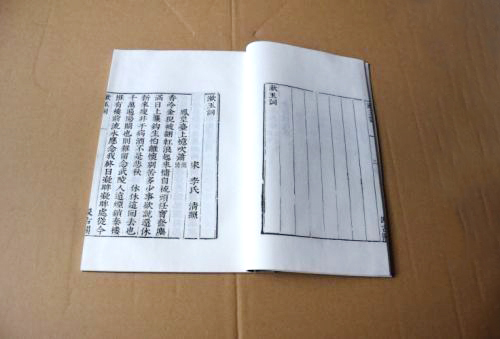 漱玉詞
漱玉詞
宋 李氏 清照
鳳皇臺上憶吹簫
香冷金猊被翻紅浪起來慵自梳頭任寶奩塵
滿日上簾鈎生怕離懷別苦多少事欲說還休
新來瘦非干病酒不是悲秋 休休這回去也
千萬遍陽關也則難留念武陵人遠煙鎖秦樓
惟有樓前流水應念我終日凝眸凝眸處從今
漱玉詞
汲古閣